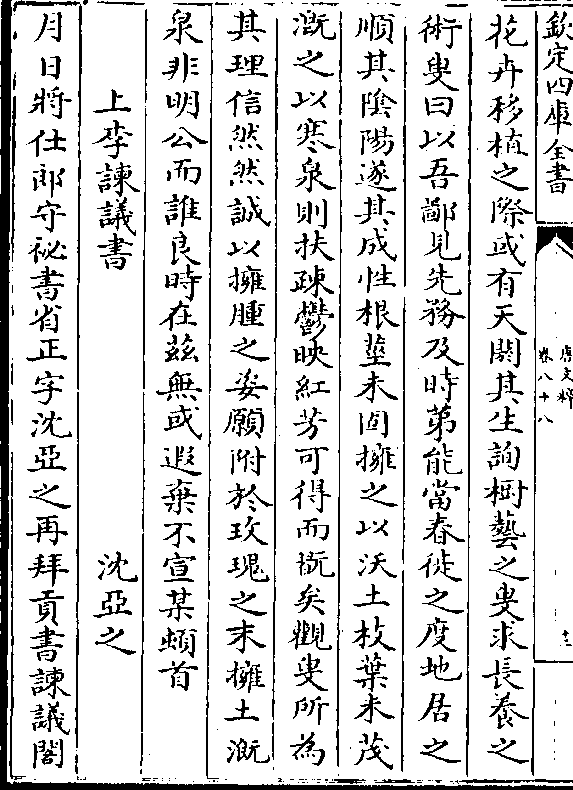 欽定四庫全書
唐文粹
卷八十八
十三
花卉移植之際或有天閼其生詢樹藝之叟求長養之
術叟曰以吾鄙見先務及時苐能當春徙之度地居之
順其隂陽遂其成性根莖未固擁之以沃土枝葉未茂
溉之以寒泉則扶疎鬱映紅芳可得而翫矣觀叟所為
其理信然然誠以擁腫之姿願附於玫瑰之末擁土溉
泉非明公而誰良時在茲無或遐棄不宣某頓首
上李諫議書
沈亞之
月日將仕郎守祕書省正字沈亞之再拜貢書諫議閣